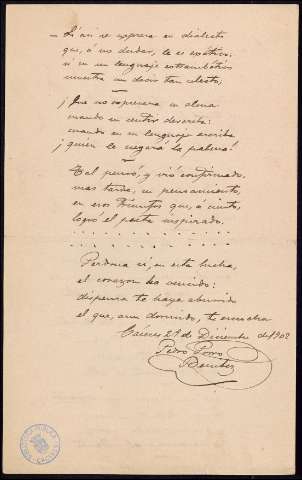 — Si así se expresa en dialecto
que, á no dudar, le es exótico:
si en un lenguaje estrambótico
muestra un decir tan electo,
¡Que no expresara en
cuando en
cuando en su lenguaje escriba
¡quién le negará la palma!
Tal pensó, y vió confirmado
mas tarde, su pensamiento,
en esos triunfos que, á ciento,
logró el poeta inspirado.
Perdona si, en esta lucha,
el corazon ha vencido:
dispensa te haya aburrido
el que, aun dormido, te escucha
Cáceres 29 de Diciembre de 1902
Pedro Porro
Benitez
BIBLIOTECA PUBLICA
CACERES